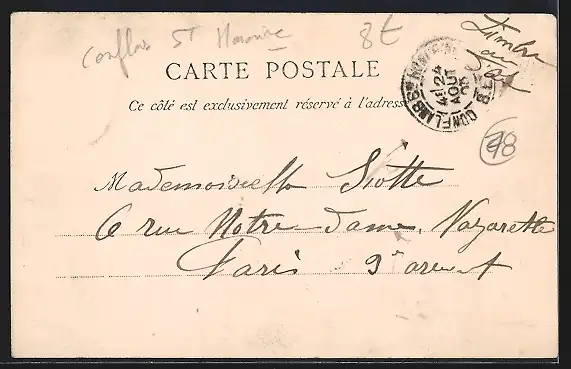 Conflans St Honorine
8€
Timbre
au
CARTE POSTALE
Ce côté est exclusivement réservé à l'adresse
CONFLANS Ste HONORINE
4E 24
AOUT
48
Mademoiselle Siotte
6 rue Notre-Dame Nazareth
Paris 3e arr-t